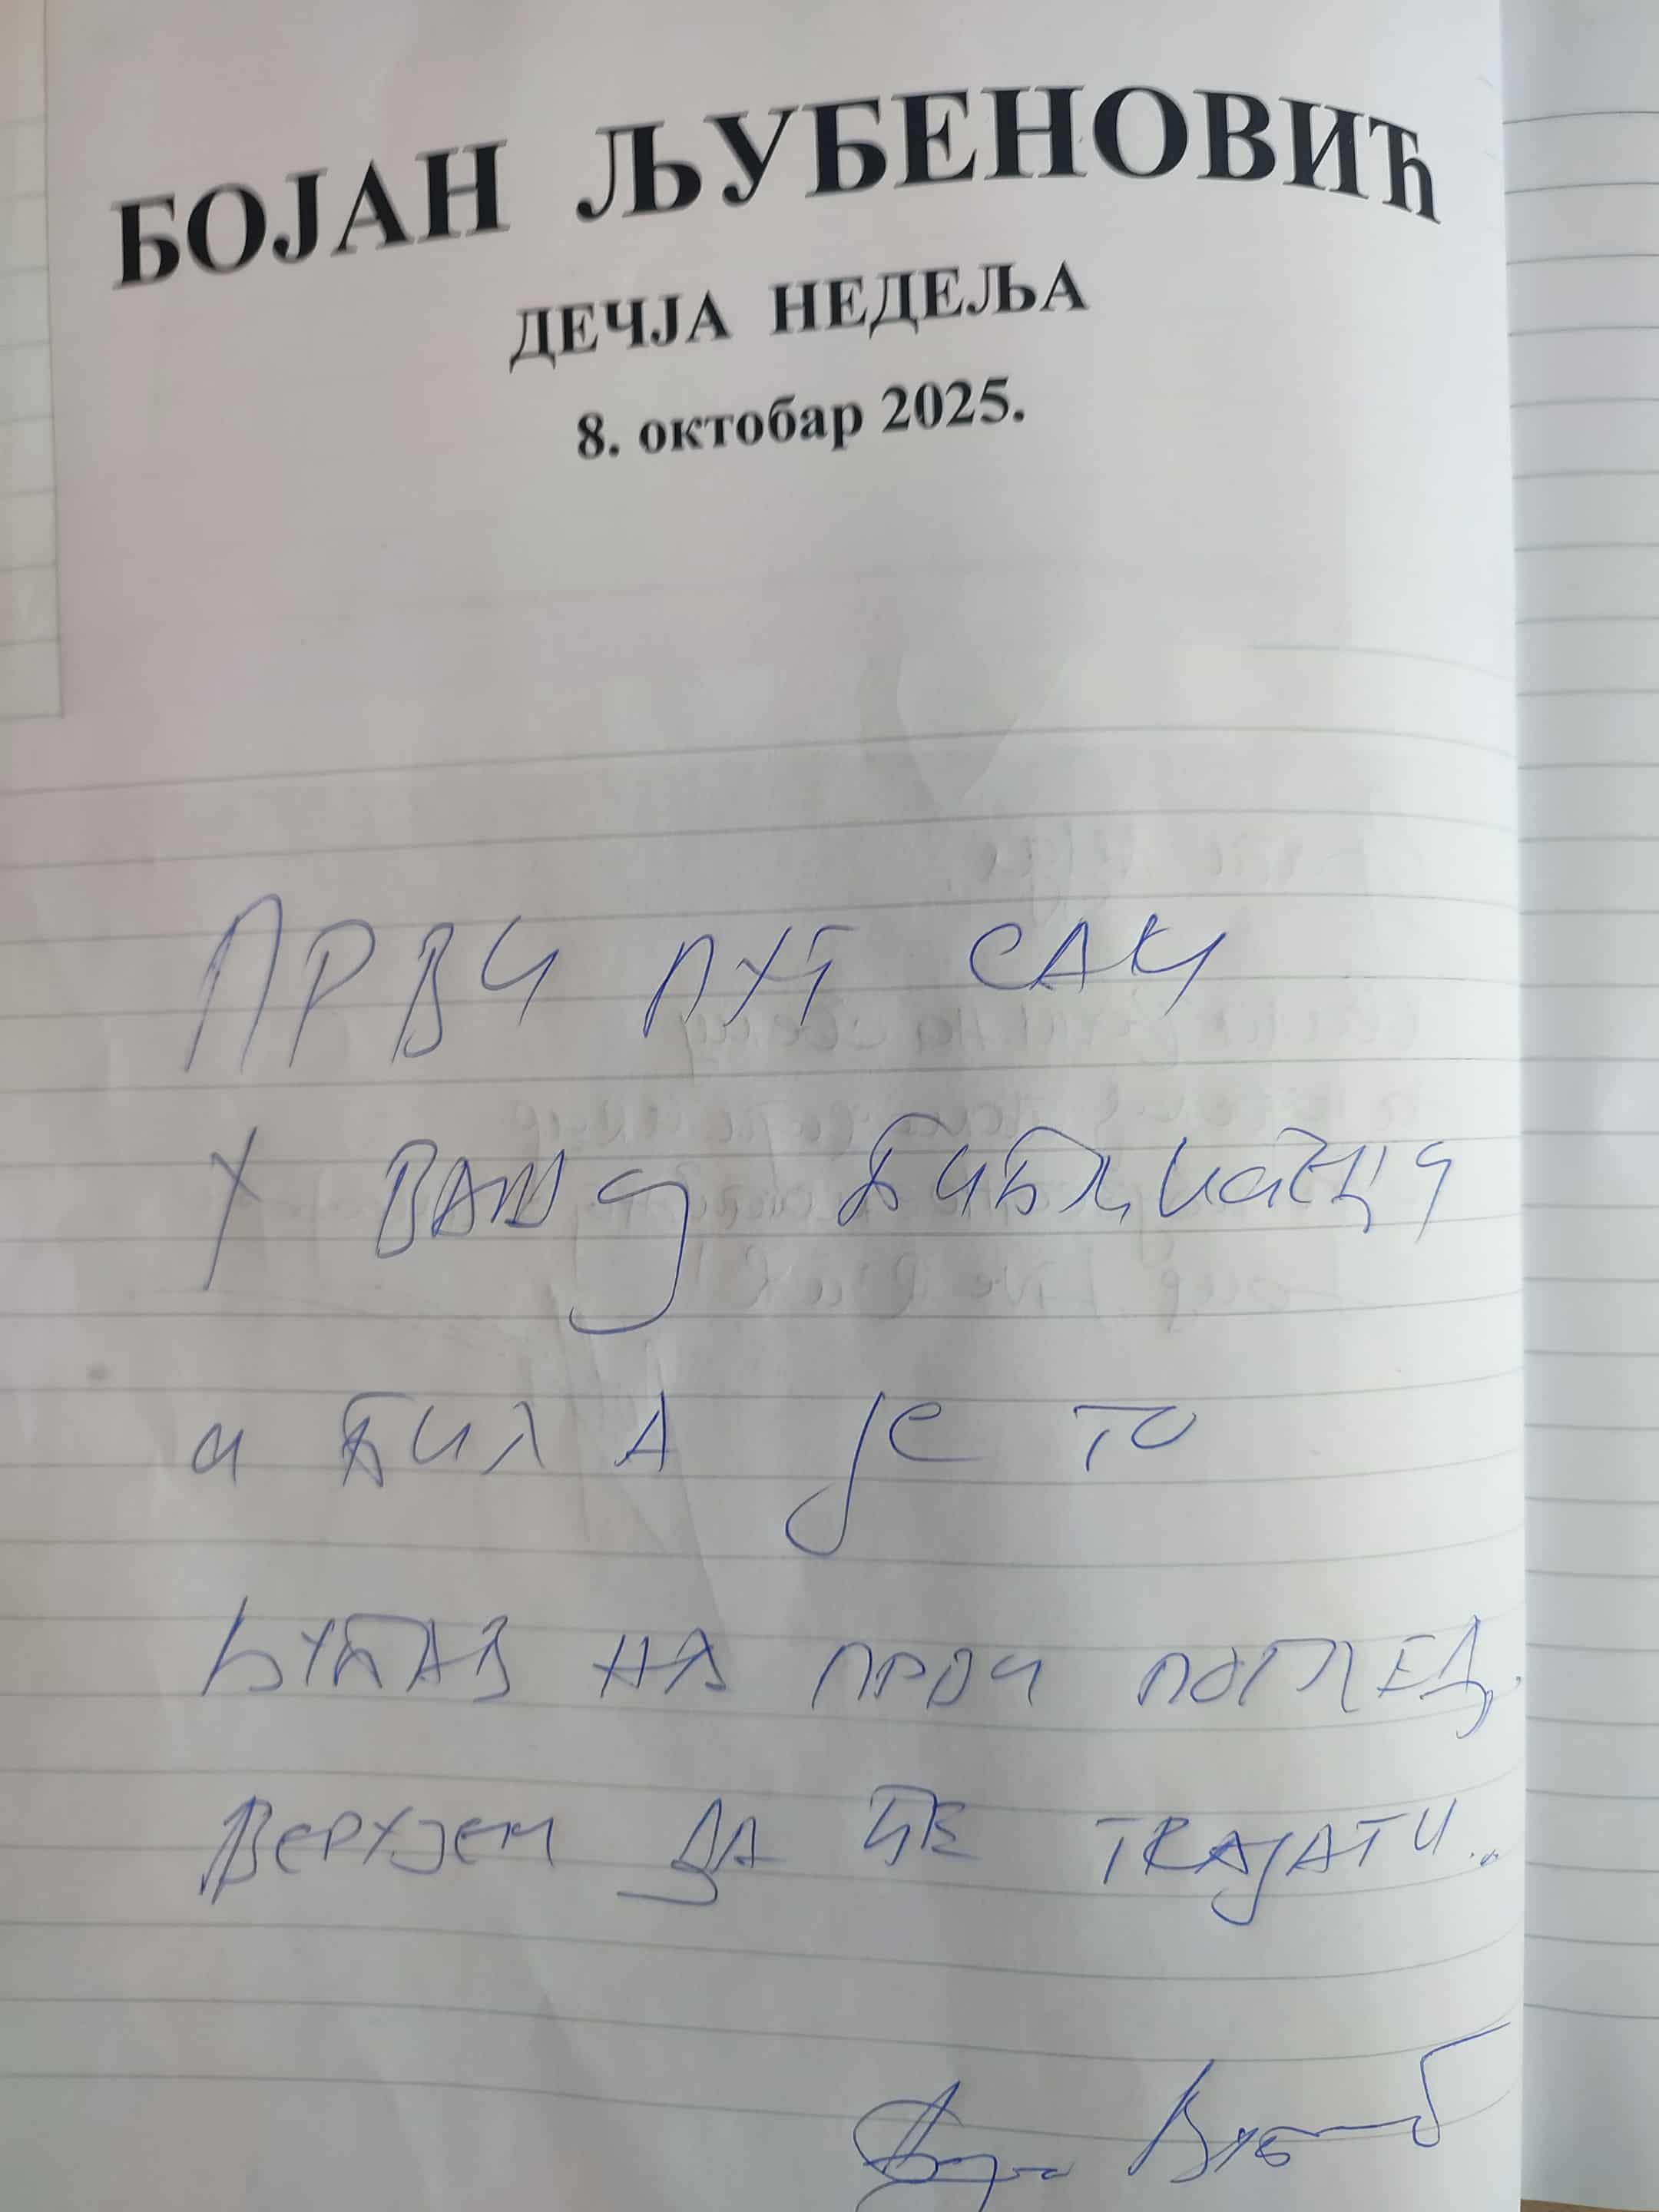 БОЈАН ЉУБЕНОВИЋ
ДЕЧЈА НЕДЕЉА
8. октобар 2025.
ПРВИ ПУТ САМ
У ВАШОЈ БИБЛИОТЕЦИ
И БИЛА ЈЕ ТО
ЉУБАВ НА ПРВИ ПОГЛЕД.
ВЕРУЈЕМ ДА ЋЕ ТРАЈАТИ...
Бојан Љубеновић